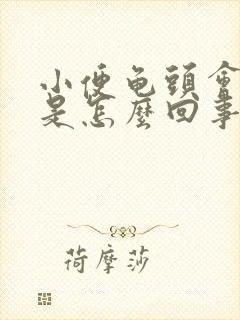 小便龟頭會
是怎麼回事
荷摩莎